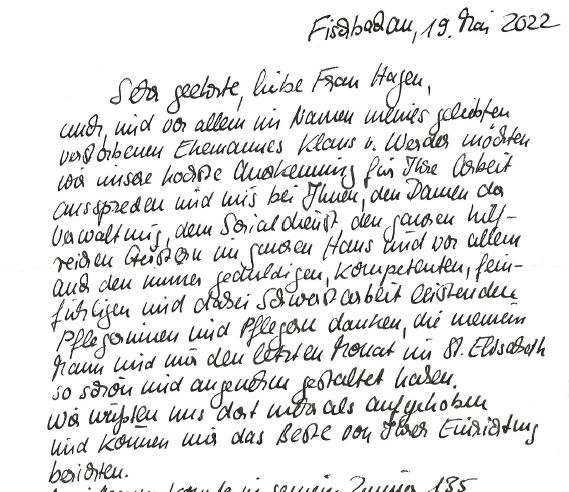 Fischbachau, 19. Mai 2022
Sehr geehrte, liebe Frau Hagen,
auch, und vor allem im Namen meines geliebten
verstorbenen Ehemannes Klaus v. Werder möchten
wir unsere höchste Anerkennung für Ihre Arbeit
aussprechen und uns bei Ihnen, den Damen der
Verwaltung, dem Sozialdienst den ganzen hilf-
reichen Geistern im ganzen Haus und vor allem
auch den immer geduldigen, kompetenten, fein-
fühligen und dabei Schwerstarbeit leistenden
Pflegerinnen und Pflegern danken, die meinem
Mann und mir den letzten Monat im St. Elisabeth
so schön und angenehm gestaltet haben.
Wir wußten uns dort mehr als aufgehoben
und können nur das Beste von Ihrer Einrichtung
berichten.
konnte in seinem Zimmer 185